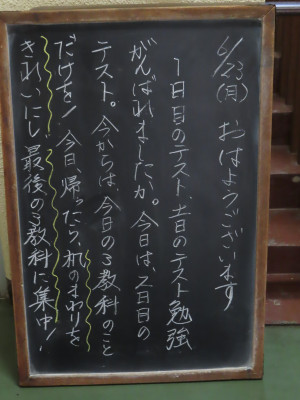 6/23(月) おはようございます
1日目のテスト、昔のテスト勉強
がんばれましたか。今日は、2日目の
テスト。今からは、今日の3教科のこと
だけを！今日、帰ったら、机のまわりを
きれいにし、最後の3教科に集中！